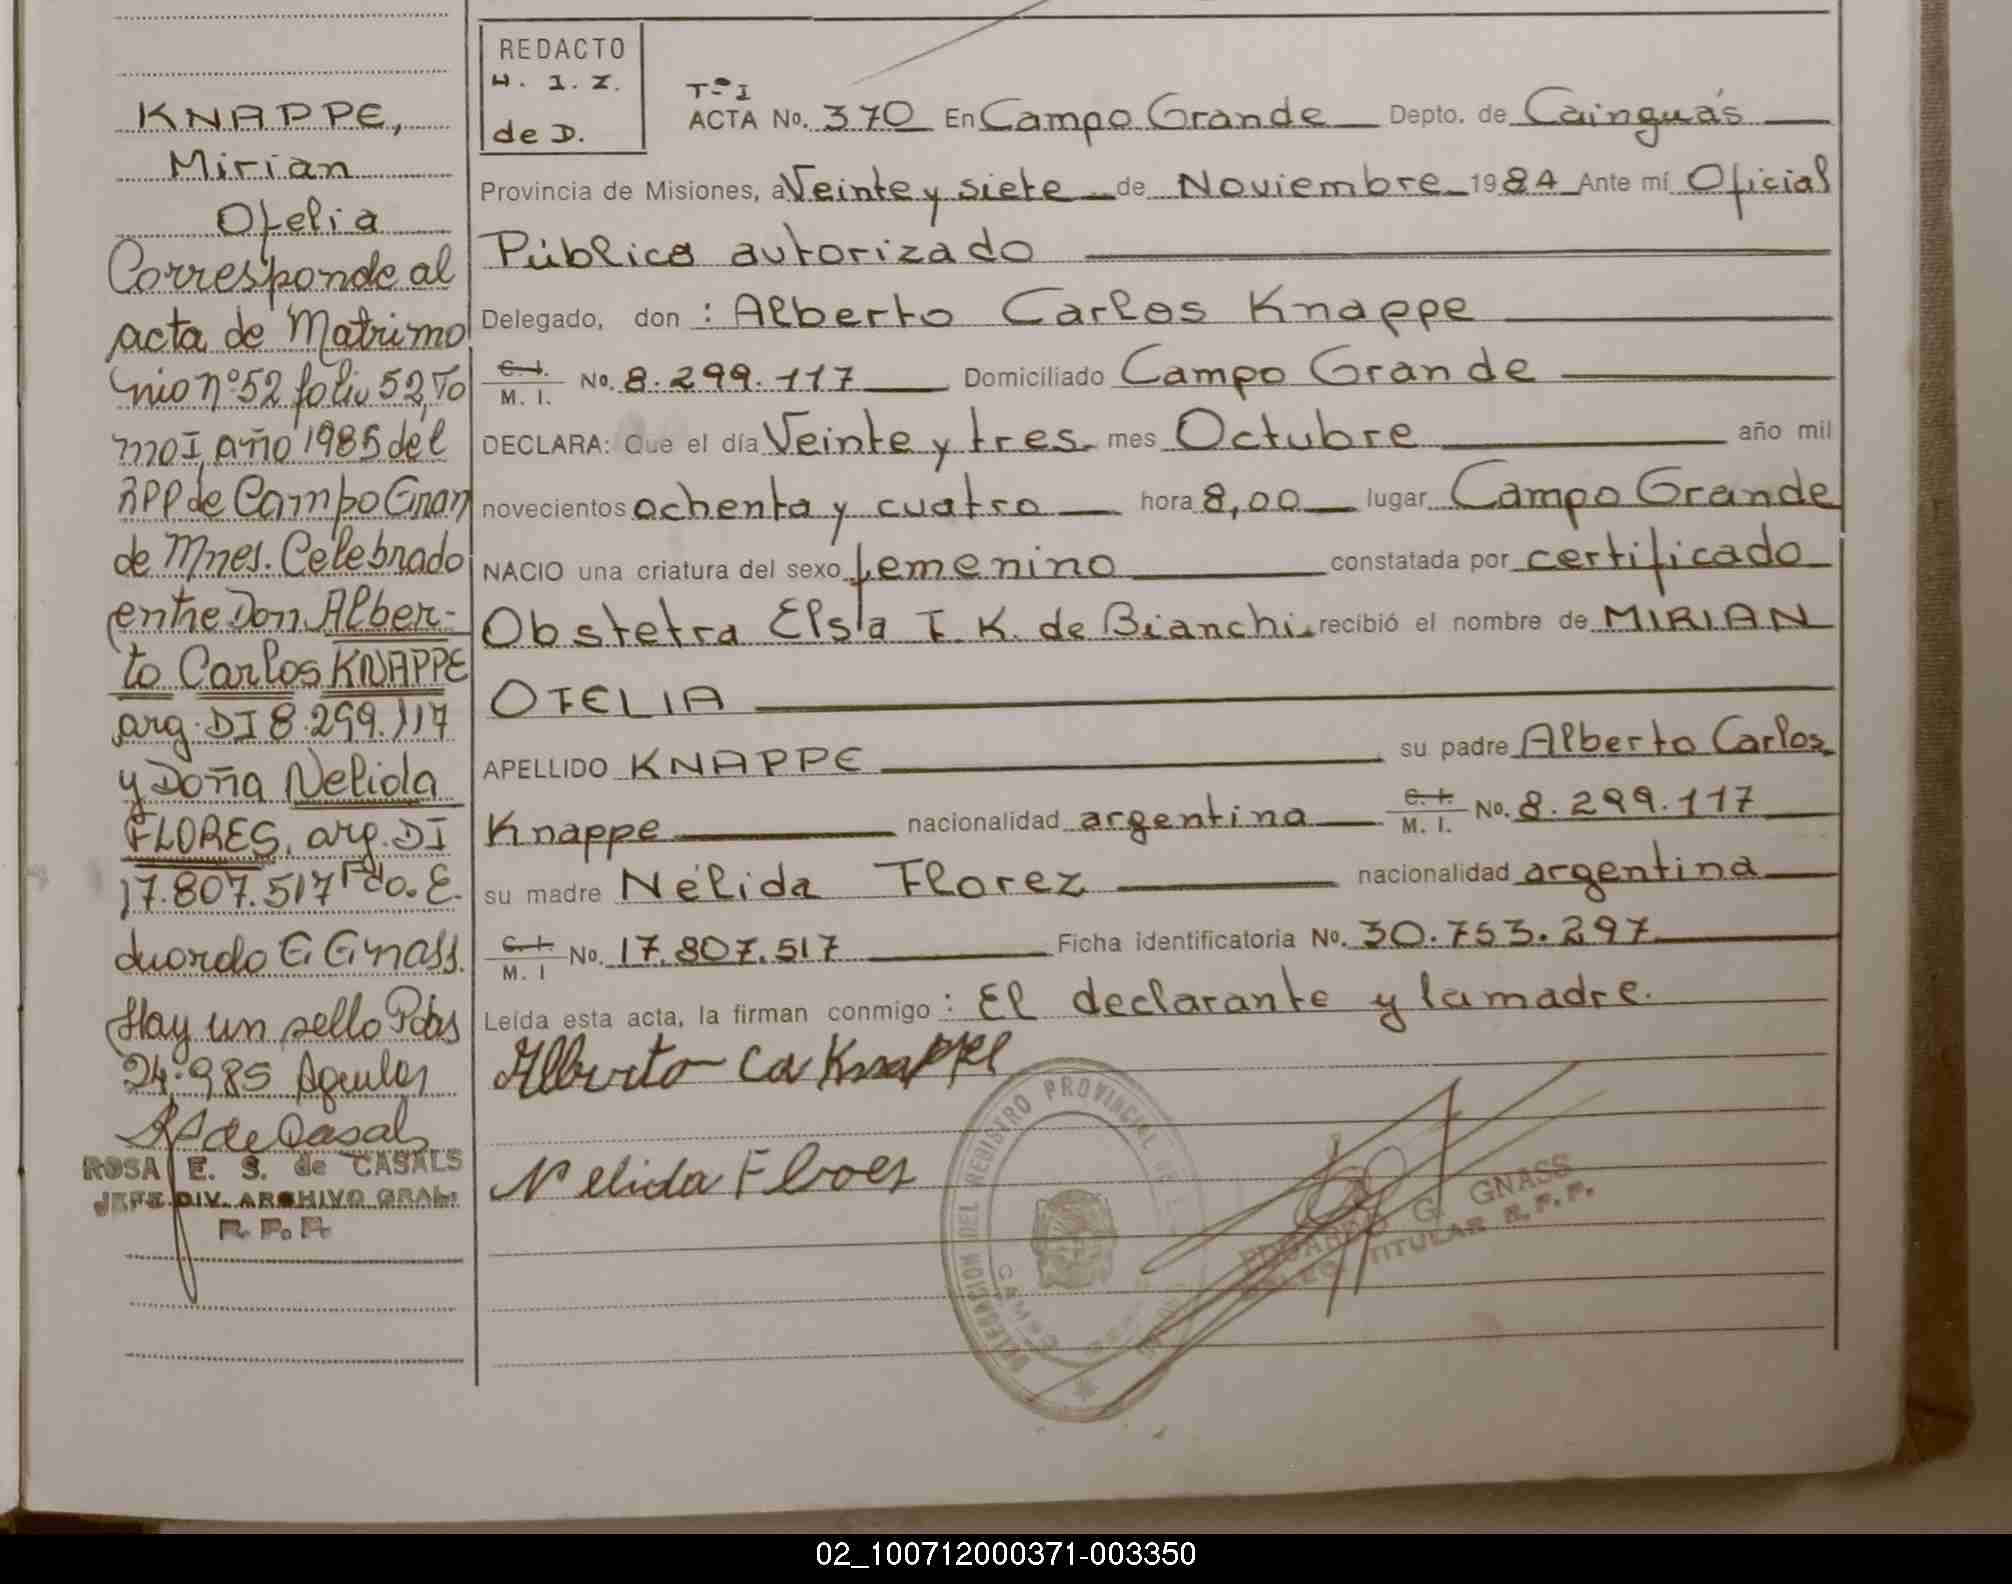 KNAPPE,
Mirian
Ofelia
Corresponde al
acta de Matrimo
nio nº 52 folio 52, To
mo I, año 1985 del
RPP de Campo Gran
de Mnes. Celebrado
entre Don Alber-
to Carlos KNAPPE
arg. DI 8.299.117
y Doña Nelida
FLORES, arg. DI
17.807.517 Fdo. E.
duardo G Gnass.
Hay un sello Pdas
24.985
de Casals
ROSA E. S. de CASALS
JEFE DIV. ARCHIVO GRAL.
R. P. P.
REDACTO
H. I. Z.
de D.
Tº I
ACTA No. 370 En Campo Grande Depto. de Cainguás
Provincia de Misiones, a Veinte y siete de Noviembre 1984 Ante mí Oficial
Público autorizado
Delegado, don : Alberto Carlos Knappe
C. I.
M. I. No. 8.299.117 Domiciliado Campo Grande
DECLARA: Que el día Veinte y tres mes Octubre año mil
novecientos ochenta y cuatro hora 8,00 lugar Campo Grande
NACIO una criatura del sexo femenino constatada por certificado
Obstetra Elsa T. K. de Bianchi. recibió el nombre de MIRIAN
OFELIA
APELLIDO KNAPPE su padre Alberto Carlos
Knappe nacionalidad argentina C. I. M. I. No. 8.299.117
su madre Nélida Florez nacionalidad argentina
C. I. M. I No. 17.807.517 Ficha identificatoria No. 30.753.297
Leída esta acta, la firman conmigo : El declarante y la madre.
Alberto Ca Knappe
Nelida Floes
DELEGACION DEL REGISTRO PROVINCIAL DE
EDUARDO G. GNASS
DELEG. TITULAR R. P. P.
02_100712000371-003350